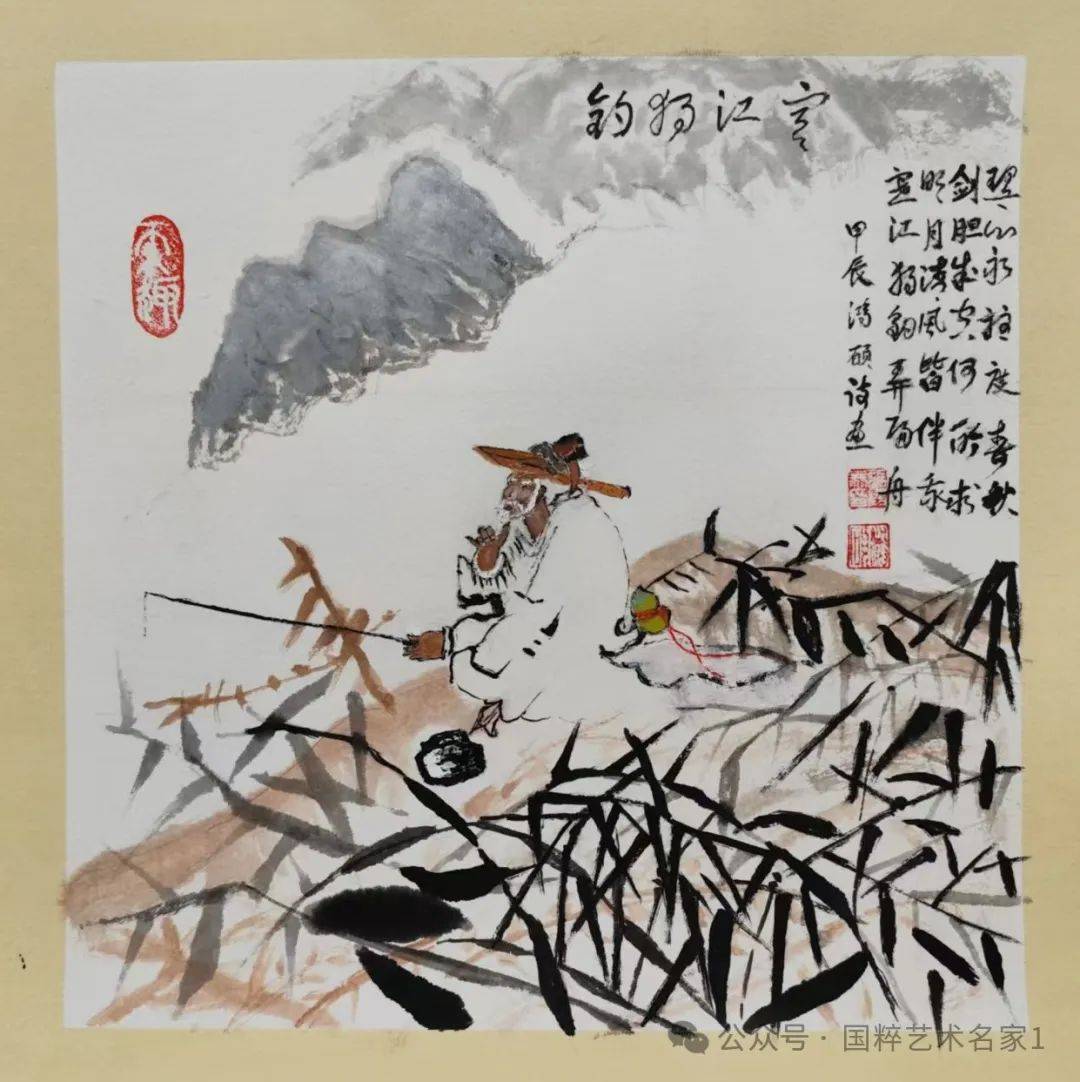 寒江独钓
琴心永度春秋
剑胆成空何所求
明月清风皆伴我
寒江独钓弄扁舟
甲辰鸿硕诗画
公众号 · 国粹艺术名家1